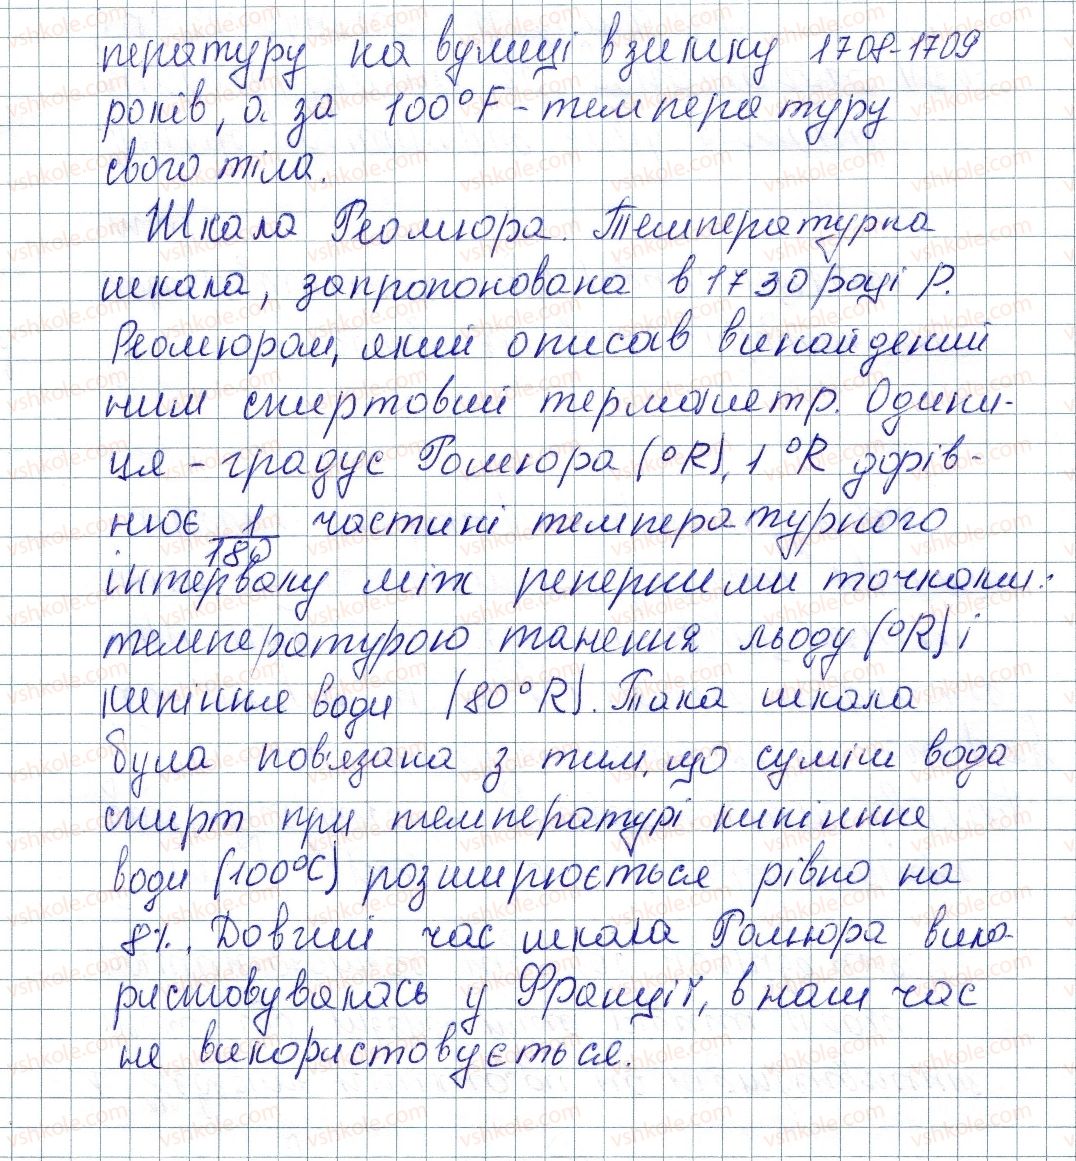 пературу на вулиці взимку 1708-1709
років, а за 100°F - температуру
свого тіла.
Шкала Реомюра. Температурна
шкала, запропонована в 1730 році Р.
Реомюром, який описав винайдений
ним спиртовий термометр. Одини-
ця - градус Ромюра (°R), 1°R дорів-
нює 1/180 частині температурного
інтервалу між реперними точками:
температурою танення льоду (°R) і
кипіння води (80°R). Така шкала
була пов'язана з тим, що суміш вода
спирт при температурі кипіння
води (100°C) розширюється рівно на
8%. Довгий час шкала Ромюра вико-
ристовувалась у Франції, в наш час
не використовується.